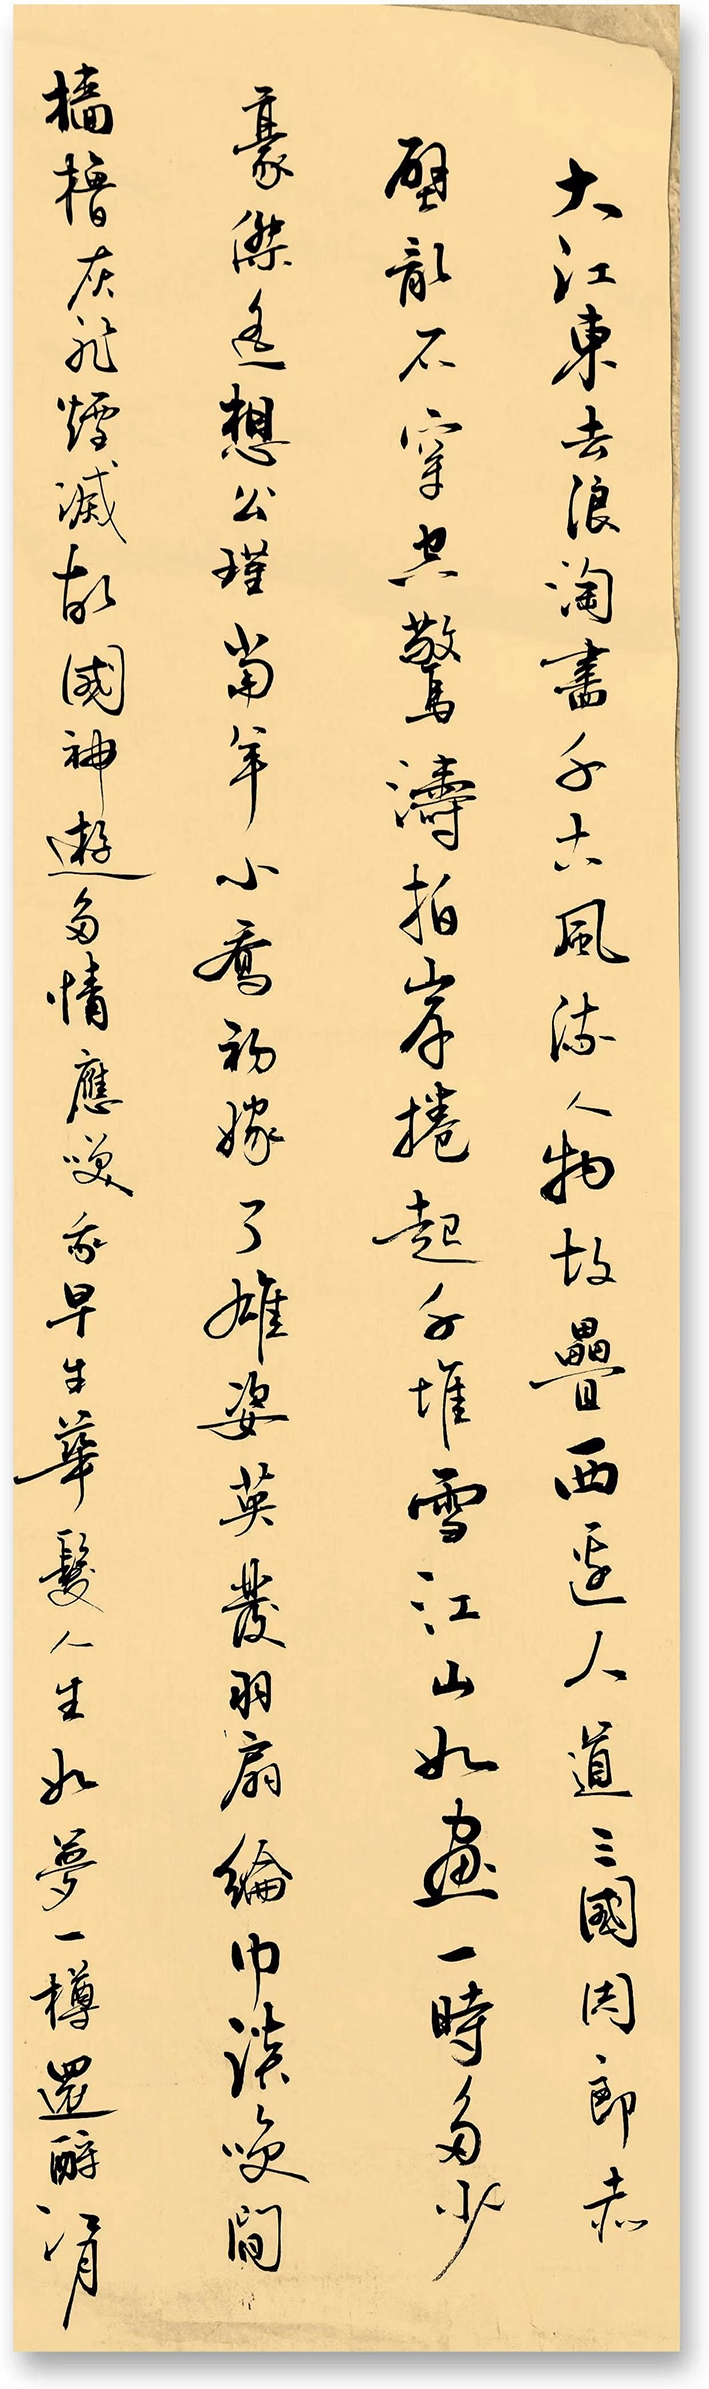 大江東去浪淘盡千古風流人物故壘西邊人道三國周郎赤
壁亂石穿空驚濤拍岸捲起千堆雪江山如畫一時多少
豪傑遙想公瑾當年小喬初嫁了雄姿英發羽扇綸巾談咲間
檣櫓灰飛煙滅故國神遊多情應咲我早生華髮人生如夢一樽還酹江月